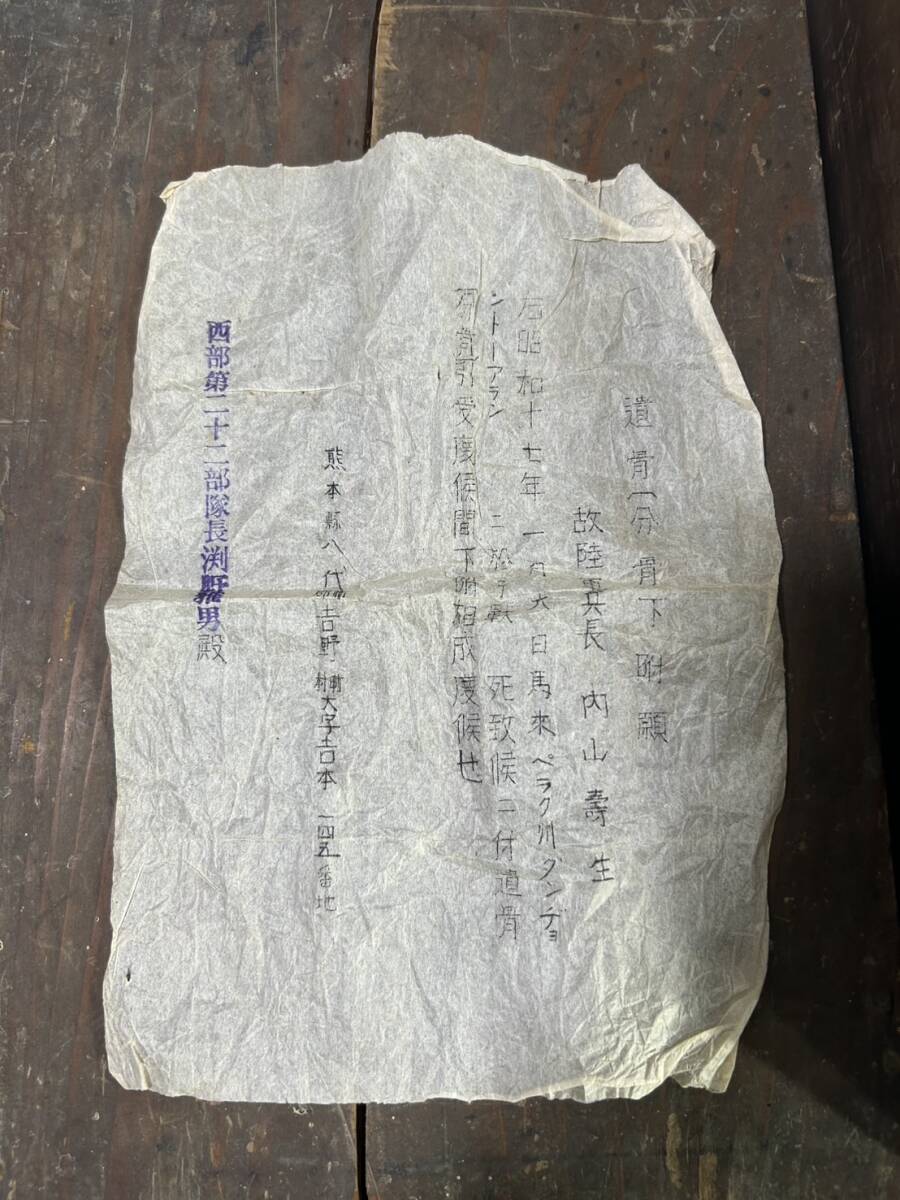 遺骨(分骨下附願
故陸軍兵長 内山壽生
右昭和十七年一月六日馬來ペラク州ダンヂョ
ントーアラン ニ於テ戰死致候ニ付遺骨
分骨引受度候間下附相成度候也
熊本縣八代郡吉野村大字吉本一四五番地
西部第二十二部隊長渕 男殿